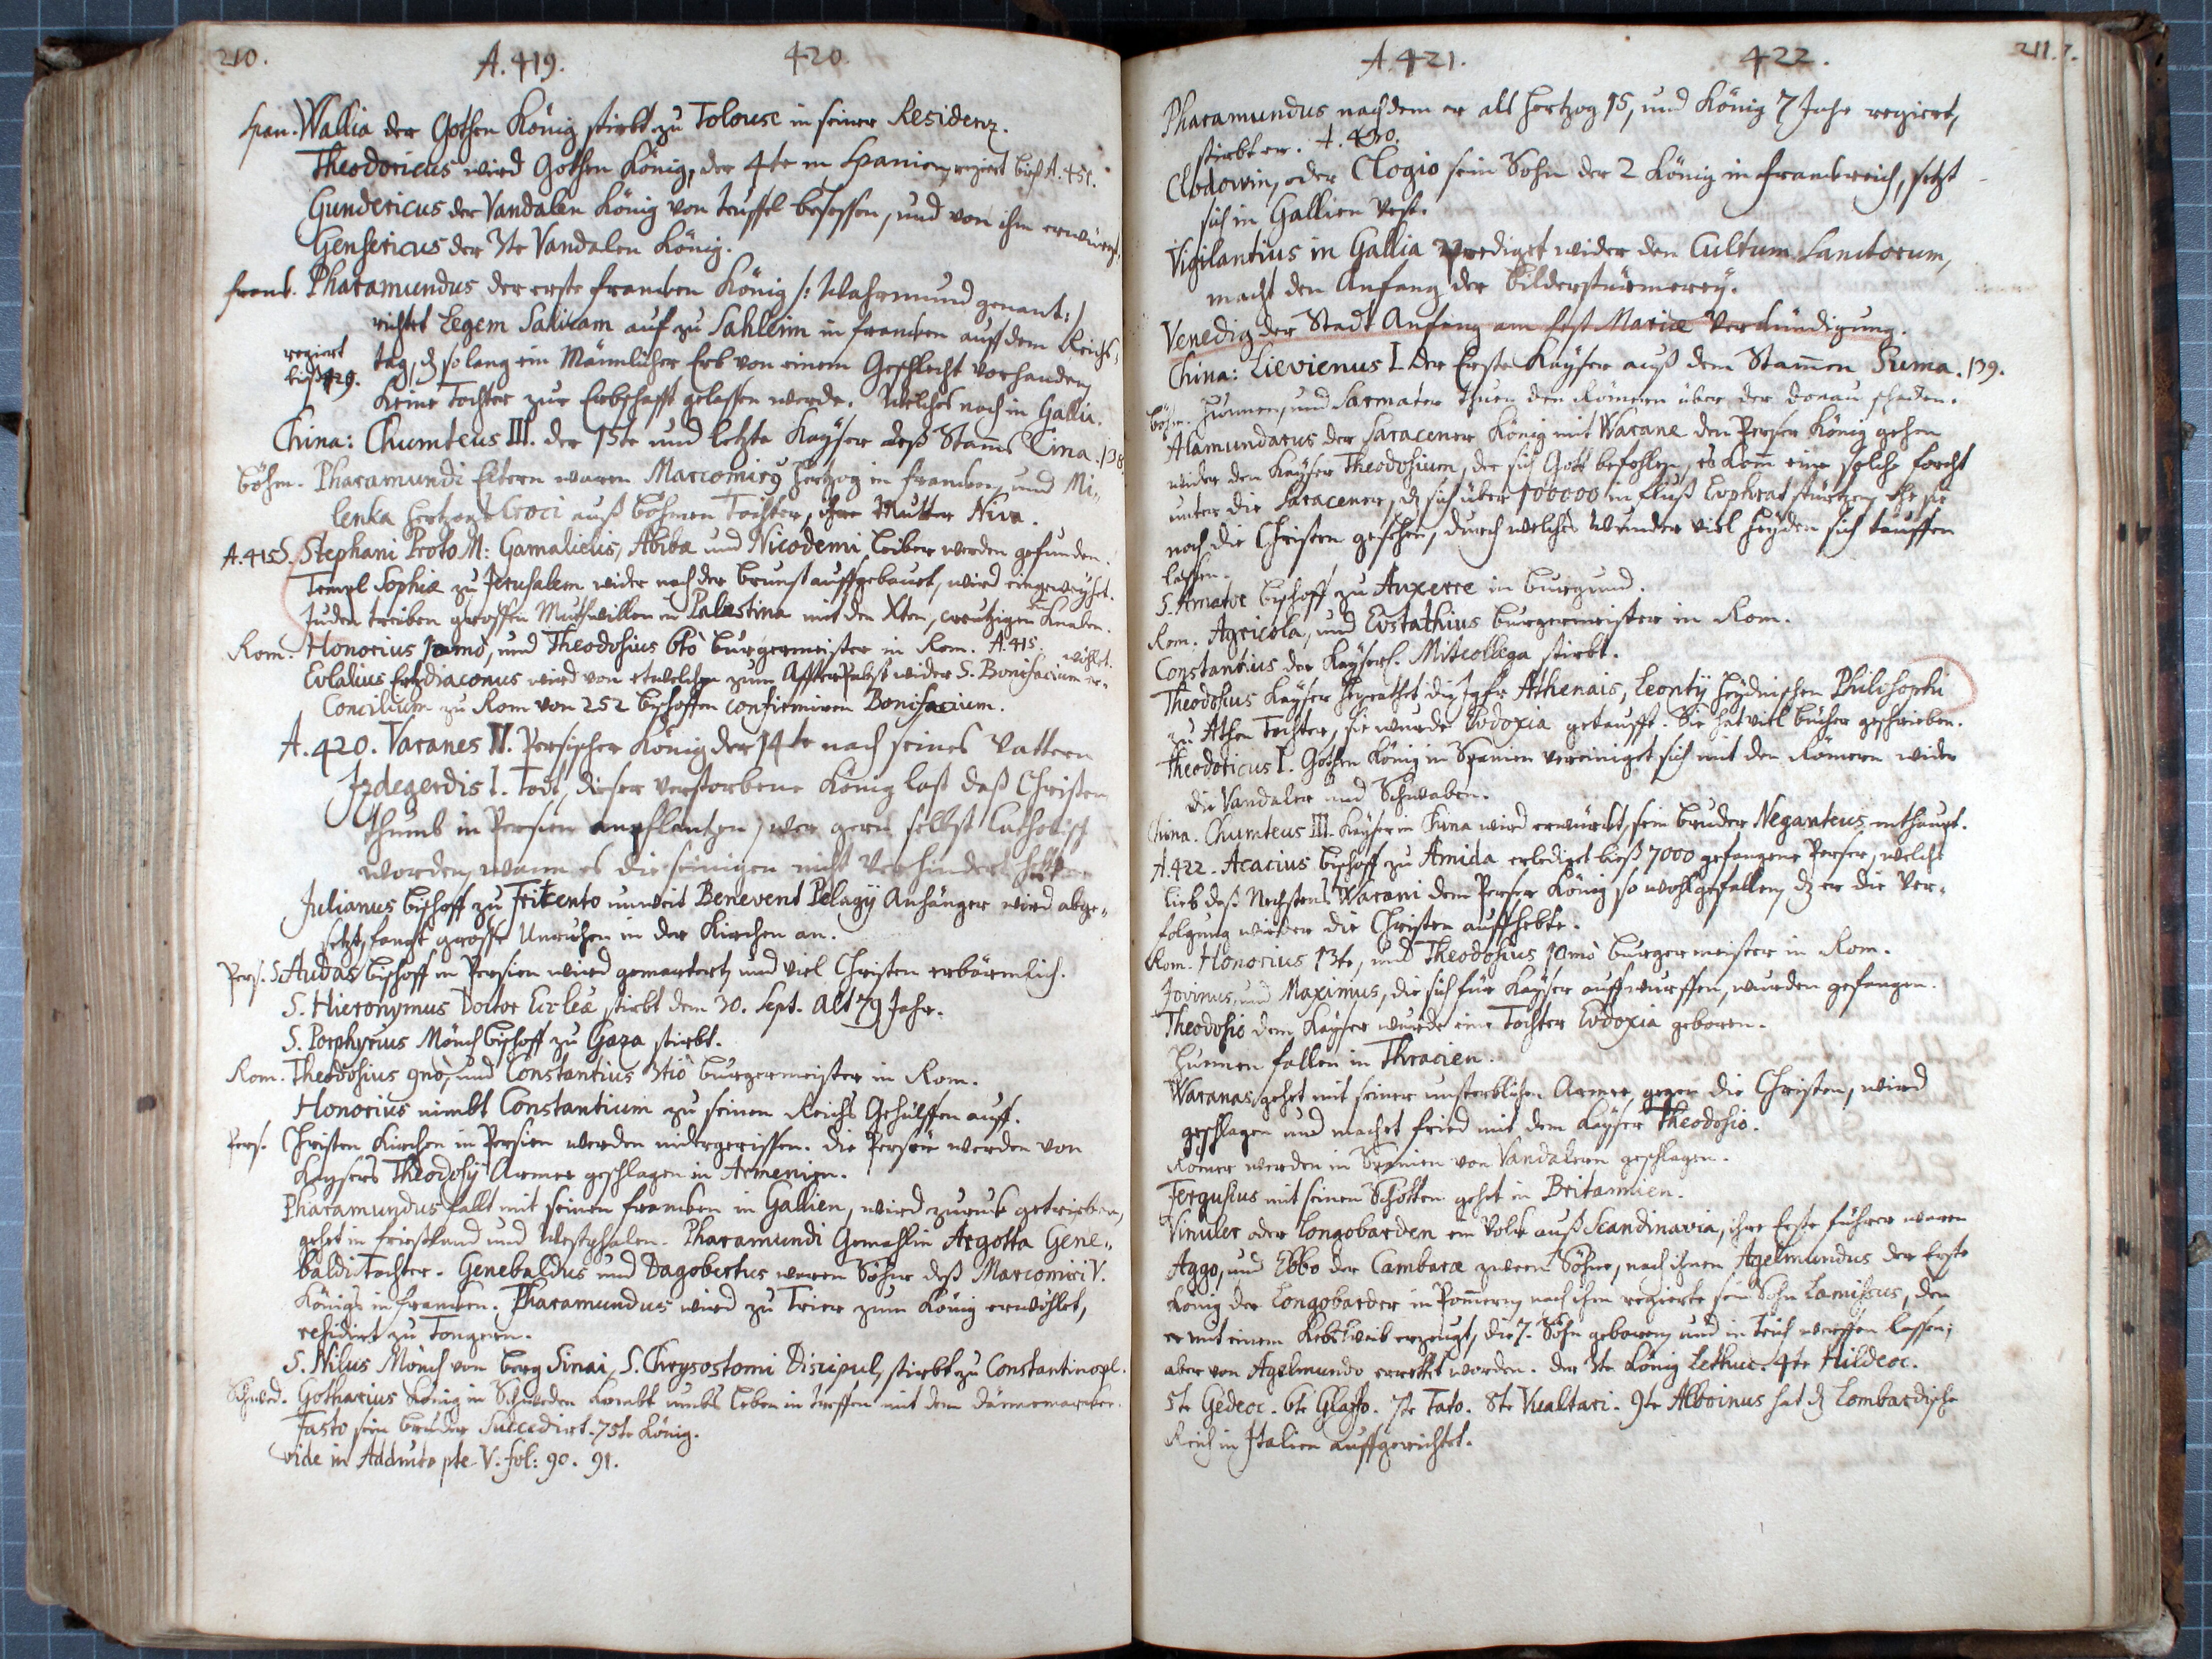 210. A. 419. 420.
Span. Wallia der Gothen König stirbt zu Tolouse in seiner Residenz.
Theodoricus wird Gothen König, der 4te in Spanien, regiert biß A. 451.
Gundericus der Vandalen König von teuffel besessen, und von ihm erwürgt.
Gensericus der 3te Vandalen König.
Franck. Pharamundus der erste Francken König /: Wahrmund genant :/
richtet Legem Salicam auf zu Sahlheim in Francken auf dem Reichs-
regiert
biß 429.
tag, dz so lang ein Männlicher Erb von einem Geschlecht vorhanden,
keine Tochter zur Erbschafft gelassen werde. Welches noch in Gallia.
China: Chumteus III. der 15te und letzte Kayser deß Stams Cina. 138.
Böhm. Pharamundi Eltern waren Marcomirus Hertzog in Francken, und Mi-
lenka Hertzogs Croci auß Böhmen Tochter, ihre Mutter Niva.
A. 415 S. Stephani Proto M: Gamalielis, Abiba und Nicodemi Leiber werden gefunden.
Tempel Sophiæ zu Jerusalem wider nach der Brunst auffgebauet, wird eingeweyhet.
Juden treiben grossen Muthwillen in Palæstina mit den Xten, creutzigen Knaben.
Rom. Honorius 12mo, und Theodosius 8to Burgermeister in Rom. A. 415.
Eulalius Erzdiaconus wird von etwelchen zum AffterPabst wider S. Bonifacium er- wöhlet.
Concilium zu Rom von 252 Bischoffen confirmiren Bonifacium.
A. 420. Varanes IV. Persischer König der 14te nach seines Vattern
Izdegerdis I. Todt, dieser verstorbene König last daß Christen
thumb in Persien anpflantzen, wer gern selbst Catholisch
worden, wann es die seinigen nicht verhindert hetten
Julianus Bischoff zu Fritento unweit Benevent Pelagÿ Anhänger wird abge-
setzt, fangt grosse Unruhen in der Kirchen an.
Pers. S. Audas Bischoff in Persien wird gemartert, und viel Christen erbärmlich.
S. Hieronymus Doctor Eccleæ stirbt den 30. Sept. Alt 79 Jahr.
S. Porphyrius Mönch Bischoff zu Gaza stirbt.
Rom. Theodosius 9no, und Constantius 3tio Burgermeister in Rom.
Honorius nimbt Constantium zu seinen Reichs Gehülffen auff.
Pers. Christen Kirchen in Persien werden nidergerissen. Die Perser werden von
Kaysers Theodosÿ Armee geschlagen in Armenien.
Pharamundus fallt mit seinen Francken in Gallien, wird zuruck getrieben,
gehet in Frießland und Westphalen. Pharamundi Gemahlin Argotta Gene-
baldi Tochter. Genebaldus und Dagobertus waren Söhne deß Marcomiri V.
Königs in Francken. Pharamundus wird zu Trier zum König erwöhlet,
residirt zu Tongern.
S. Nilus Mönch von Berg Sinai, S. Chrysostomi Discipul, stirbt zu Constantinopl.
Schwed. Gotharius König in Schweden kombt umbs Leben in treffen mit dem Dännemarcker.
Fasto sein Bruder Succedirt. 75te König.
vide in Addnta pte V. fol: 90. 91.
A. 421. 422. 211.
Pharamundus nachdem er alß Hertzog 15, und König 7 Jahr regiert,
stirbt er. A. 430.
Clodowin, oder Clogio sein Sohn der 2 König in Franckreich, setzt
sich in Gallien vest.
Vigilantius in Gallia prediget wider den Cultum Sanctorum,
macht den Anfang der Bilderstürmerey.
Venedig der Stadt Anfang am Fest Mariæ Verkündigung.
China: Lievienus I. der Erste Kayser auß dem Stammen Suma. 139.
Böhm. Hunnen, und Sarmater thuen den Römern über der Donau schaden.
Alamundarus der Saracener König mit Warane den Perser König gehen
wider den Kayser Theodosium, der sich Gott befohlen, es kam eine solche forcht
unter die Saracener, dz sich über 100000 in Fluß Euphrat stürtzen, ehe sie
noch die Christen gesehen, durch welches Wunder viel Heyden sich tauffen
lassen.
S. Amator Bischoff zu Auxerre in Burgund.
Rom. Agricola, und Eustathius Burgermeister in Rom.
Constantius der Kayserl. Mitcollega stirbt.
Theodosius Kayser heyrathet die Jgfr Athenais, Leontÿ Heydnischen Philosophi
zu Athen Tochter, sie wurde Eudoxia getaufft. Sie hat viel Bücher geschrieben.
Theodoricus I. Gothen König in Spanien vereiniget sich mit den Römern wider
die Vandaler und Schwaben.
China. Chumteus III. Kayser in China wird erwürckt, sein Bruder Neganteus enthaupt.
A. 422. Acacius Bischoff zu Amida erlediget ließ 7000 gefangene Perser, welche
Lieb deß Nechsten Warani dem Perser König so wohlgefallen, dz er die Ver-
folgung wieder die Christen auffhebte.
Rom. Honorius 13te, und Theodosius 10mo Burgermeister in Rom.
Jovinus, und Maximus, die sich für Kayser auffwurffen, wurden gefangen.
Theodosio dem Kayser wurde eine Tochter Eudoxia geboren.
Hunnen fallen in Thracien.
Waranas gehet mit seiner unsterblichen Armee gegen die Christen, wird
geschlagen und machet fried mit dem Kayser Theodosio.
Römer werden in Spanien von Vandalern geschlagen.
Fergusius mit seinen Schotten gehet in Britannien.
Vinuler oder Longobarden ein Volck auß Scandinavia, ihre Erste führer waren
Aggo, und Ebbo der Cambaræ zween Söhne, nach ihnen Agelmundus der Erste
König der Longobarder in Pommern, nach ihm regierte sein Sohn Lamissus, den
er mit einem Kebsweib erzeugt, die 7. Söhn geboren, und in teich werffen lassen;
aber von Agelmundo errettet worden. der 3te König Lethuc. 4te Hildeoc.
5te Gedeoc. 6te Glaffo. 7te Tato. 8te Vualtari. 9te Alboinus hat dz Lombardische
Reich in Italien auffgerichtet.